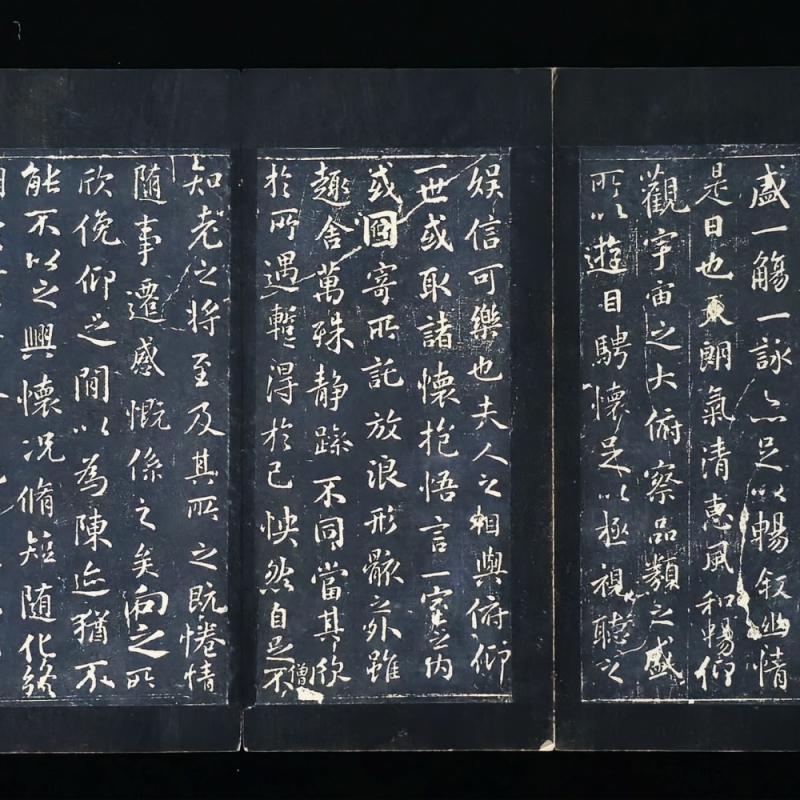 盛一觴一詠亦足以暢叙幽情
是日也天朗氣清惠風和暢仰
觀宇宙之大俯察品類之盛
所以遊目騁懷足以極視聽之
娛信可樂也夫人之相與俯仰
一世或取諸懷抱悟言一室之内
或因寄所託放浪形骸之外雖
趣舍萬殊静躁不同當其欣
於所遇蹔得於己怏然自足不
僧
知老之将至及其所之既惓情
随事遷感慨係之矣向之所
欣俛仰之間以為陳迹猶不
能不以之興懷况脩短随化終